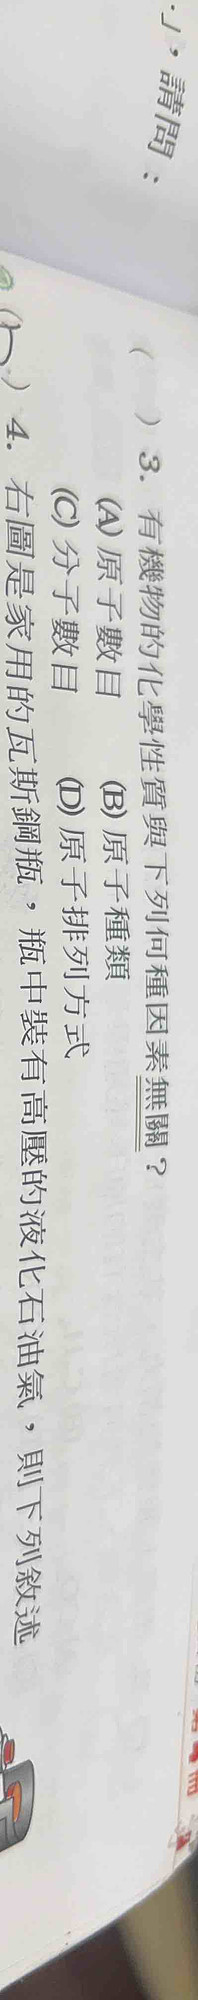 .」，請問：
(　) 3. 有機物的化學性質與下列何種因素無關？
(A) 原子數目　(B) 原子種類
(C) 分子數目　(D) 原子排列方式
) 4. 右圖是家用的瓦斯鋼瓶，瓶中裝有高壓的液化石油氣，則下列敘述